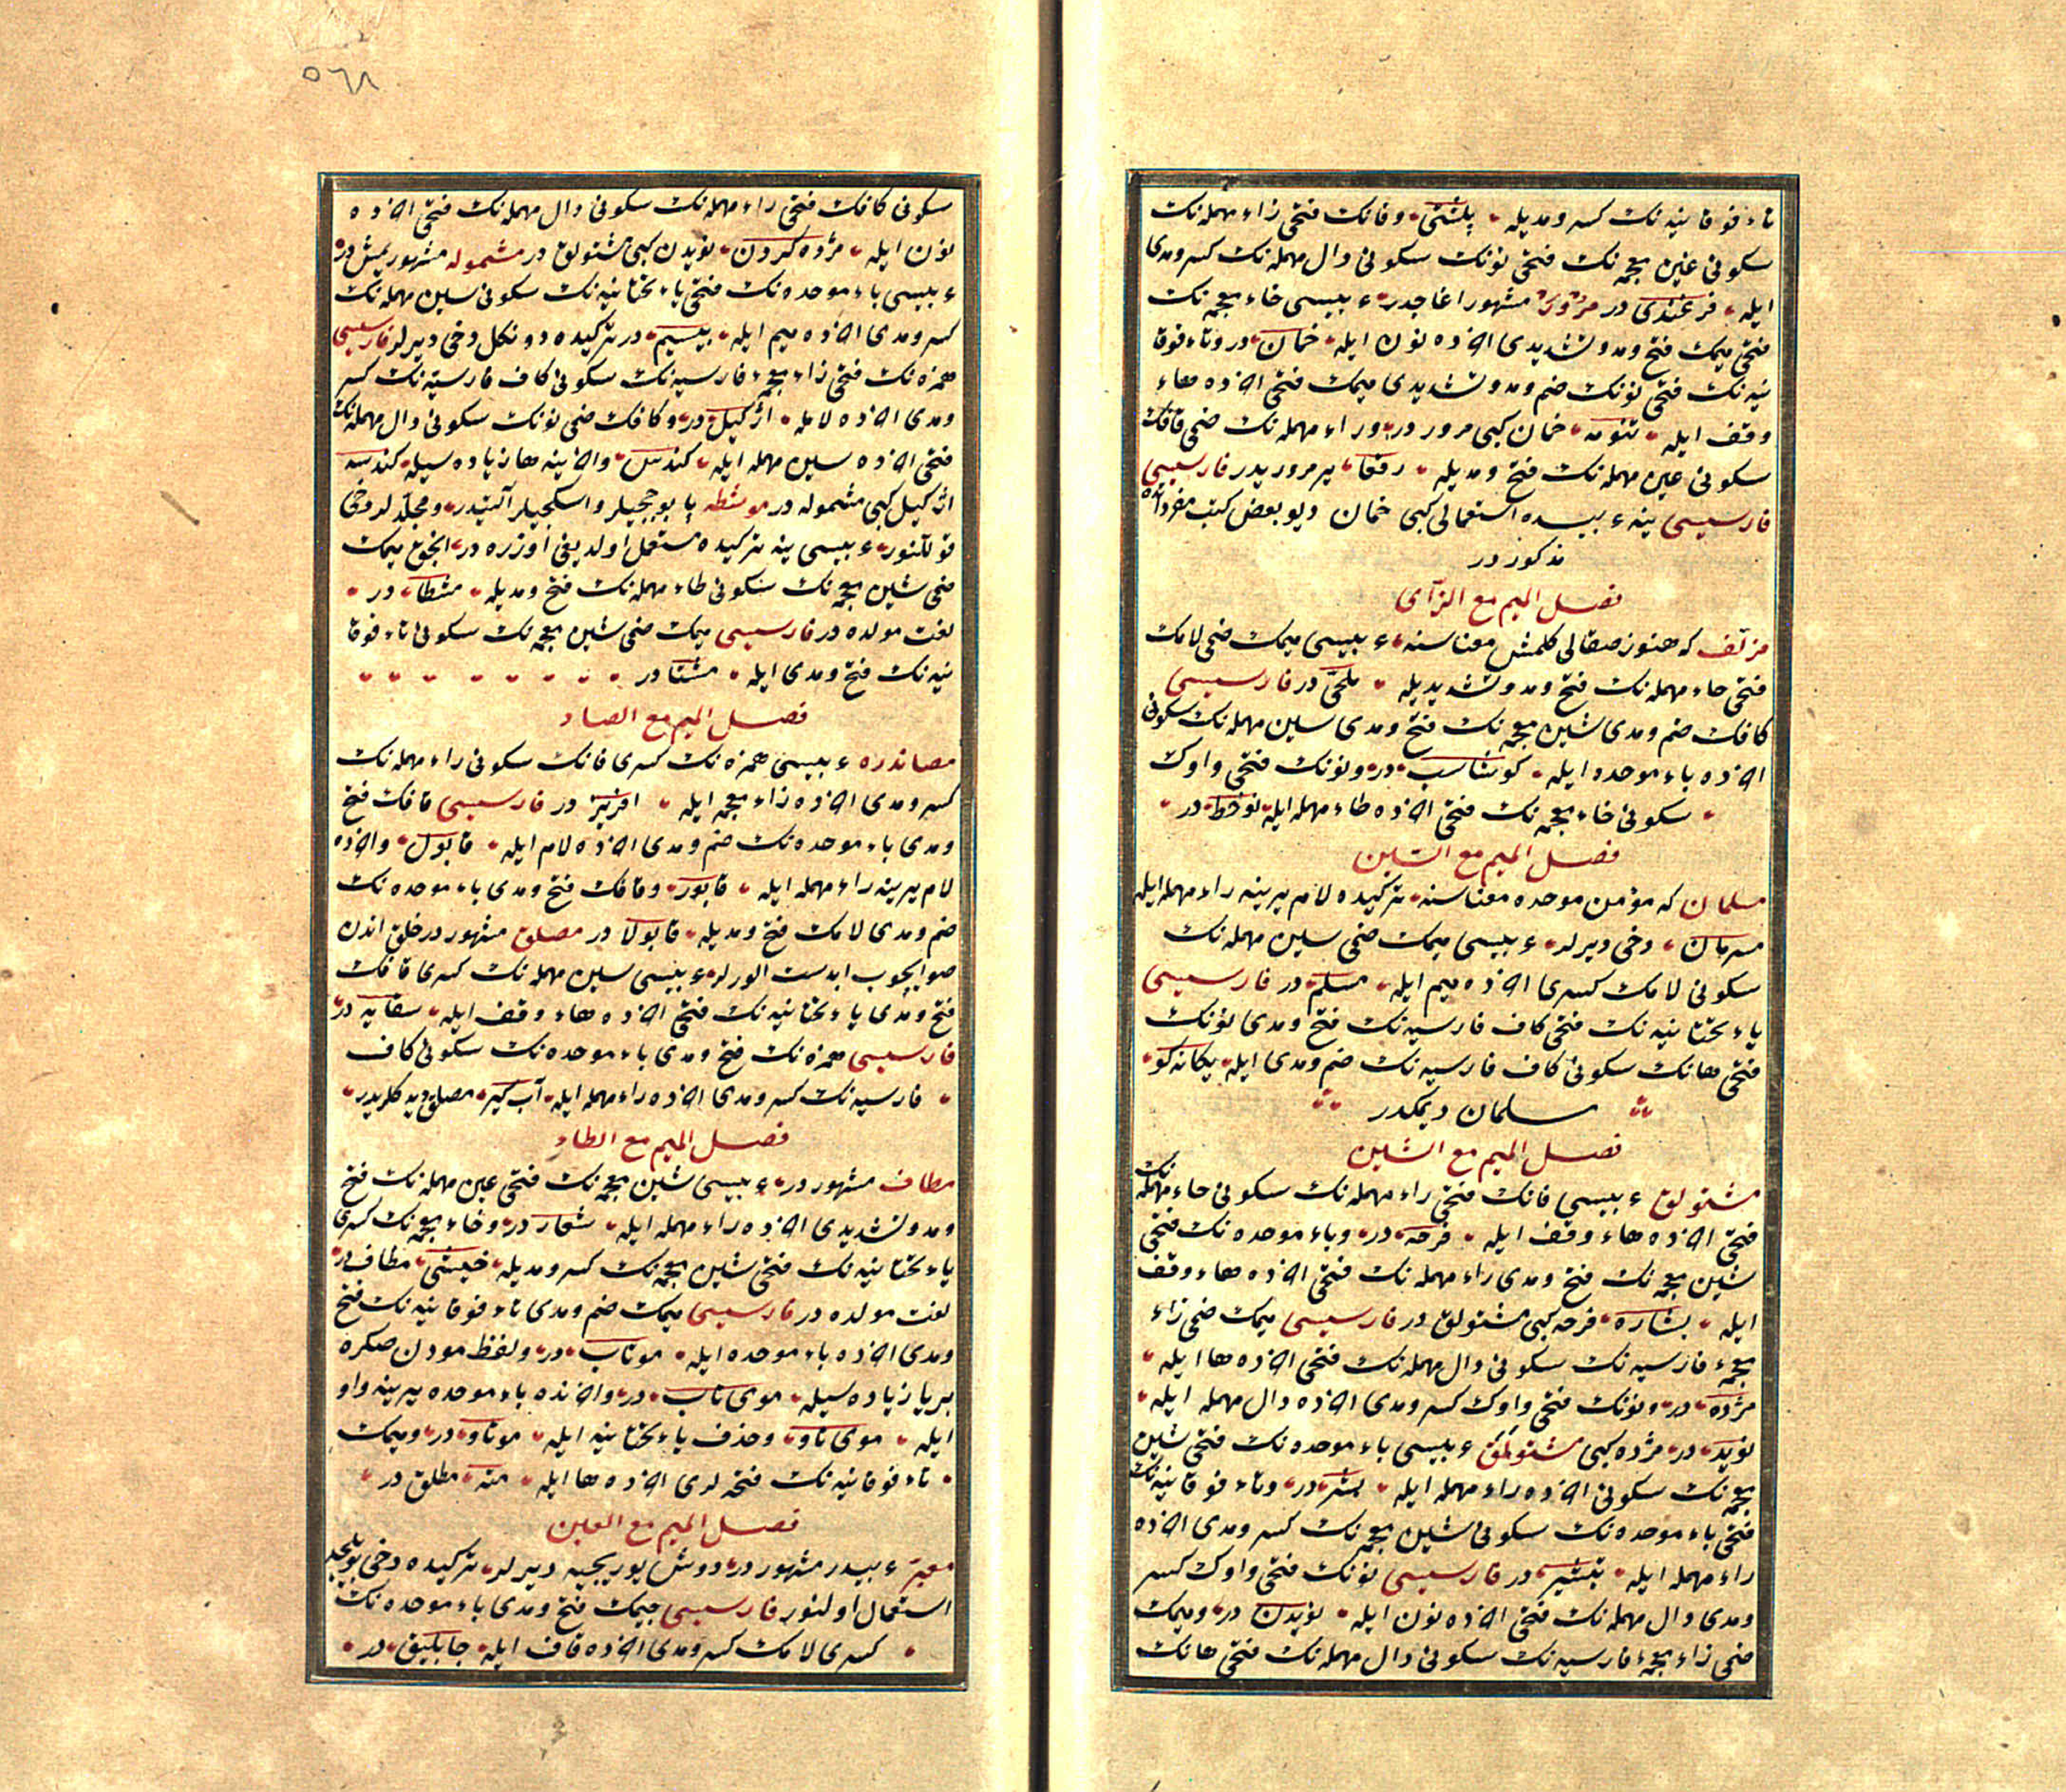 تاء فوقانیه‌نک کسر و مدیله پلشتی وفانک فتحی زاء مهمله‌نک
سکونی غین معجمه‌نک فتحی نونک سکونی دال مهمله‌نک کسر و مدی
ایله فرغندی در مرور مشهور اغاجدر ع بیسی خاء معجمه‌نک
فتحی میمک فتح و مد و تشدیدی اخرده نون ایله خمان در و تاء فوقا
نیه‌نک فتحی نونک ضم و مد و تشدیدی میمک فتحی اخرده هاء
وقف ایله تنومه خمان کبی مرور در وراء مهمله‌نک ضمی قافک
سکونی عین مهمله‌نک فتح و مدیله رقعا یر مروریدر فارسیسی
فارسیسی ینه ع بیسده استعمالی کبی خمان دیو بعض کتب مفرداتده
مذکور در
فصل المیم مع الزآی
مزلف که هنوز صقالی کلمش معناسنه ع بیسی میمک ضمی لامک
فتحی حاء مهمله‌نک فتح و مد و تشدیدیله ملحی در فارسیسی
کافک ضم و مدی شین معجمه‌نک فتح و مدی سین مهمله‌نک سکونی
اخرده باء موحده ایله کوشاسب در و نونک فتحی واوک
سکونی خاء معجمه‌نک فتحی اخرده طاء مهمله ایله نوخط در
فصل المیم مع السین
مسلمان که مؤمن موحده معناسنه ترکیده لام یرینه راء مهمله ایله
مسرمان دخی دیرلر ع بیسی میمک ضمی سین مهمله‌نک
سکونی لامک کسری اخرده میم ایله مسلم در فارسیسی
یاء تحتانیه‌نک فتحی کاف فارسیه‌نک فتح و مدی نونک
فتحی هانک سکونی کاف فارسیه‌نک ضم و مدی ایله یکانه کو
مسلمان دیمکدر
فصل المیم مع الشین
مشتولق ع بیسی فانک فتحی راء مهمله‌نک سکونی حاء مهمله‌نک
فتحی اخرده هاء وقف ایله فرحه در وباء موحده‌نک فتحی
شین معجمه‌نک فتح و مدی راء مهمله‌نک فتحی اخرده هاء وقف
ایله بشاره فرحه کبی مشتولق در فارسیسی میمک ضمی زاء
معجمهء فارسیه‌نک سکونی دال مهمله‌نک فتحی اخرده ها ایله
مژده در و نونک فتحی واوک کسر و مدی اخرده دال مهمله ایله
نوید در مژده کبی مشتولمق ع بیسی باء موحده‌نک فتحی شین
معجمه‌نک سکونی اخرده راء مهمله ایله بشر در وتاء فوقانیه‌نک
فتحی باء موحده‌نک سکونی شین معجمه‌نک کسر و مدی اخرده
راء مهمله ایله تبشیر در فارسیسی نونک فتحی واوک کسر
و مدی دال مهمله‌نک فتحی اخرده نون ایله نویدن در و میمک
ضمی زاء معجمهء فارسیه‌نک سکونی دال مهمله‌نک فتحی هانک
٥٦٨
سکونی کافک فتحی راء مهمله‌نک سکونی دال مهمله‌نک فتحی اخرده
نون ایله مژده کردن نویدن کبی مشتولق در مشموله مشهور یمشدر
ع بیسی باء موحده‌نک فتحی یاء تحتانیه‌نک سکونی سین مهمله‌نک
کسر و مدی اخرده میم ایله بیسیم در ترکیده دونکل دخی دیرلر فارسیسی
همزه‌نک فتحی زاء معجمهء فارسیه‌نک سکونی کاف فارسیه‌نک کسر
و مدی اخرده لامله اژکیل در و کافک ضمی نونک سکونی دال مهمله‌نک
فتحی اخرده سین مهمله ایله کندس واخرینه ها زیاده سیله کندسه
اژکیل کبی مشموله در موشطه پابوجیلر واسکیجیلر آلتیدر و مجلدلر دخی
قوللنور ع بیسی ینه ترکیده مستعمل اولدیغی اوزره در انجق میمک
ضمی شین معجمه‌نک سکونی طاء مهمله‌نک فتح و مدیله مشطا در
لغت مولده در فارسیسی میمک ضمی شین معجمه‌نک سکونی تاء فوقا
نیه‌نک فتح و مدی ایله مشتا در
فصل المیم مع الصاد
مصاندره ع بیسی همزه‌نک کسری فانک سکونی راء مهمله‌نک
کسر و مدی اخرده زاء معجمه ایله افریز در فارسیسی قافک فتح
و مدی باء موحده‌نک ضم و مدی اخرده لام ایله قابول واخرده
لام یرینه راء مهمله ایله قابور وقافک فتح و مدی باء موحده‌نک
ضم و مدی لامک فتح و مدیله قابولا در مصلق مشهور در خلق اندن
صو ایچوب ابدست الورلر ع بیسی سین مهمله‌نک کسری قافک
فتح و مدی یاء تحتانیه‌نک فتحی اخرده هاء وقف ایله سقایه در
فارسیسی همزه‌نک فتح و مدی باء موحده‌نک سکونی کاف
فارسیه‌نک کسر و مدی اخرده راء مهمله ایله آب کیر مصلق دیدکلریدر
فصل المیم مع الطاء
مطاف مشهور در ع بیسی شین معجمه‌نک فتحی عین مهمله‌نک فتح
و مد و تشدیدی اخرده راء مهمله ایله شعار در و خاء معجمه‌نک کسری
یاء تحتانیه‌نک فتحی شین معجمه‌نک کسر و مدیله خیشی مطاف در
لغت مولده در فارسیسی میمک ضم و مدی تاء فوقانیه‌نک فتح
و مدی اخرده باء موحده ایله موتاب در و لفظ مودن صکره
بر یا زیاده سیله موی تاب در و اخرنده باء موحده یرینه واو
ایله موی تاو و حذف یاء تحتانیه ایله موتاو در و میمک
تاء فوقانیه‌نک فتحه لری اخرده ها ایله مته مطلق در
فصل المیم مع العین
معبر ع بیدر مشهور در دوش یوریجیه دیرلر ترکیده دخی
استعمال اولنور فارسیسی جیمک فتح و مدی باء موحده‌نک
کسری لامک کسر و مدی اخرده قاف ایله جابلیق در